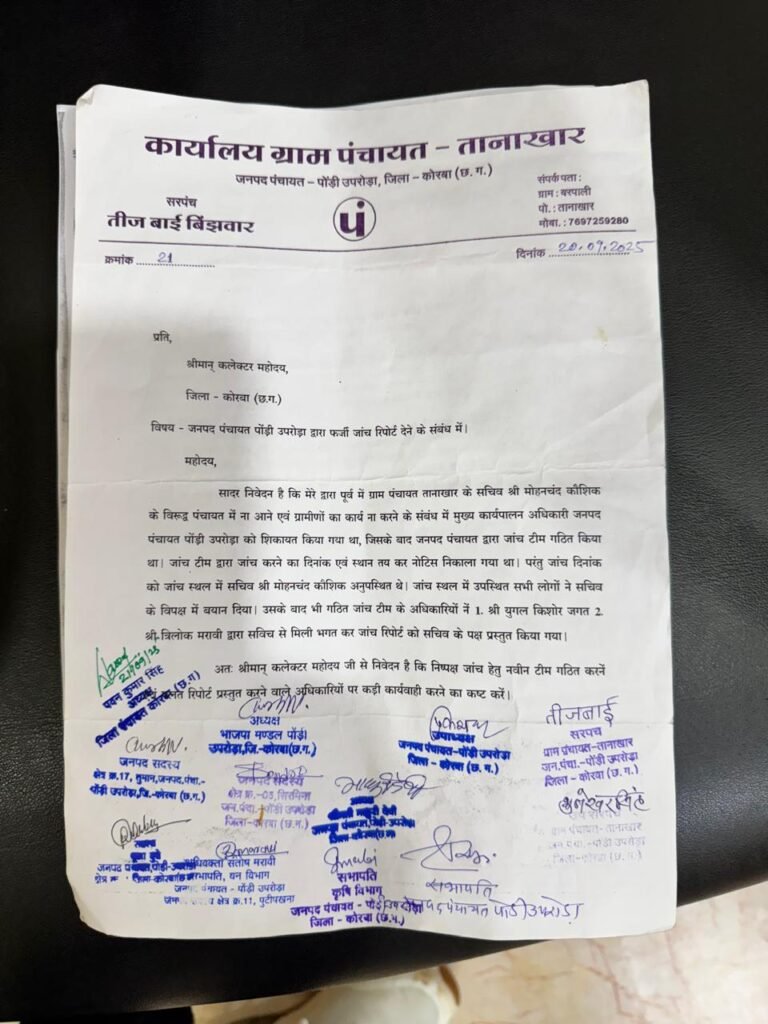 कार्यालय ग्राम पंचायत - तानाखार
जनपद पंचायत - पोंड़ी उपरोड़ा, जिला - कोरबा (छ.ग.)
सरपंच
तीज बाई बिंझवार
पं
संपर्क पता :
ग्राम : बरपाली
पो. : तानाखार
मोबा. : 7697259280
क्रमांक ........21........
दिनांक ..20.09.2025
प्रति,
श्रीमान् कलेक्टर महोदय,
जिला - कोरबा (छ.ग.)
विषय - जनपद पंचायत पोंड़ी उपरोड़ा द्वारा फर्जी जांच रिपोर्ट देने के संबंध में।
महोदय,
सादर निवेदन है कि मेरे द्वारा पूर्व में ग्राम पंचायत तानाखार के सचिव श्री मोहनचंद कौशिक
के विरूद्व पंचायत में ना आने एवं ग्रामीणों का कार्य ना करने के संबंध में मुख्य कार्यपालन अधिकारी जनपद
पंचायत पोंड़ी उपरोड़ा को शिकायत किया गया था, जिसके बाद जनपद पंचायत द्वारा जांच टीम गठित किया
था। जांच टीम द्वारा जांच करने का दिनांक एवं स्थान तय कर नोटिस निकाला गया था। परंतु जांच दिनांक
को जांच स्थल में सचिव श्री मोहनचंद कौशिक अनुपस्थित थे। जांच स्थल में उपस्थित सभी लोगों ने सचिव
के विपक्ष में बयान दिया। उसके बाद भी गठित जांच टीम के अधिकारियों नें 1. श्री युगल किशोर जगत 2.
श्री त्रिलोक मरावी द्वारा सविच से मिली भगत कर जांच रिपोर्ट को सचिव के पक्ष प्रस्तुत किया गया।
अतः श्रीमान कलेक्टर महोदय जी से निवेदन है कि निष्पक्ष जांच हेतु नवीन टीम गठित करनें
रिपोर्ट प्रस्तुत करने वाले अधिकारियों पर कड़ी कार्यवाही करने का कष्ट करें।
21/09/25
पवन कुमार सिंह
अध्यक्ष
जिला पंचायत कोरबा (छ.ग)
अध्यक्ष
भाजपा मण्डल पोंड़ी
उपरोड़ा, जि.-कोरबा (छ.ग.)
उपाध्यक्ष
जनपद पंचायत-पोंडी उपरोड़ा
जिला - कोरबा (छ. ग.)
तीजबाई
सरपंच
ग्राम पंचायत-तानाखार
जन.पंचा.-पोंड़ी उपरोड़ा
जिला - कोरबा (छ.ग.)
जनपद सदस्य
क्षेत्र क्र.17, तुमान, जनपद, पंचा.-
पोंड़ी उपरोड़ा, जि.-कोरबा (छ.ग.)
जनपद सदस्य
जन.पंचा. -पोंडी उपरोड़ा
जिला-कोरबा (छ.ग.)
ग्राम पंचायत-तानाखार
जन.पंचा.-पोंड़ी उपरोड़ा
जिला-कोरबा (छ.ग.)
अधिवक्ता संतोष मरावी
सभापति, वन विभाग
जनपद पंचायत - पोंडी उपरोड़ा
क्षेत्र क्र.11, पुटीपखना
सभापति
कृषि विभाग
जनपद पंचायत - पोंड़ी उपरोड़ा
जिला - कोरबा (छ.ग.)
सभापति
जनपद पंचायत पोडी उपरोड़ा